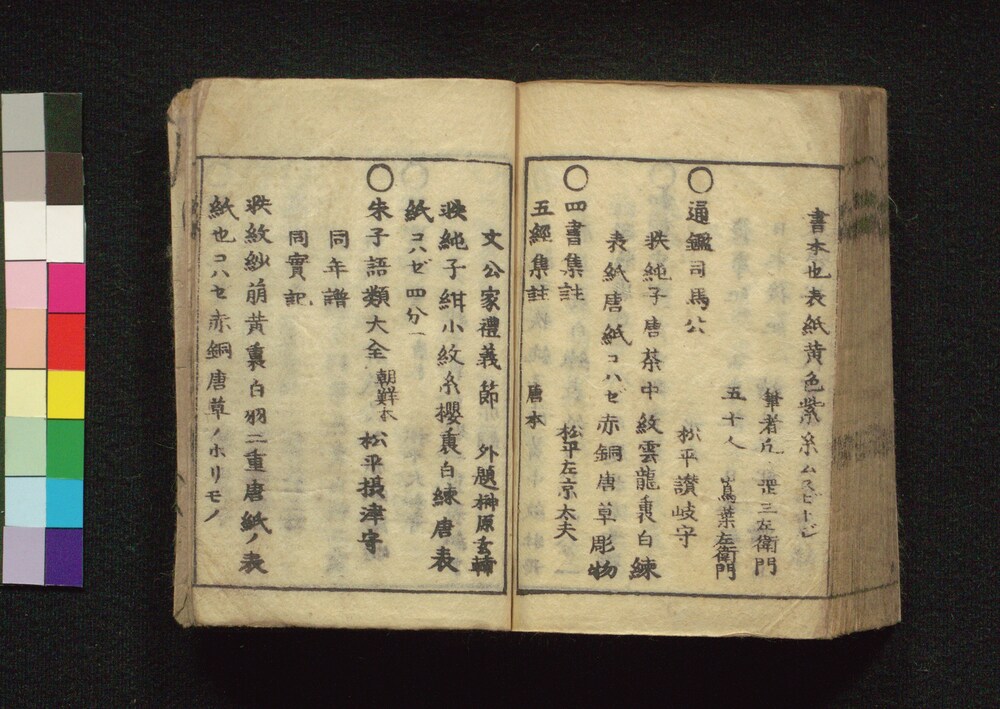 書本也表紙黄色紫糸ムスビトジ
筆者 疋三左衛門
五十人 嶌葉左衛門
〇通鑑司馬公 松平讃岐守
帙純子唐茶中紋雲龍裏白練
表紙唐紙コハゼ赤銅唐草彫物
〇四書集註 松平左京太夫
五經集註 唐本
文公家禮義節 外題榊原玄輔
帙純子紺小紋糸櫻裏白練唐表
紙コハゼ四分一
〇朱子語類大全 朝鮮本 松平摂津守
同年譜
同實記
帙紋紗萠黄裏白羽二重唐紙ノ表
紙也コハセ赤銅唐草ノホリモノ